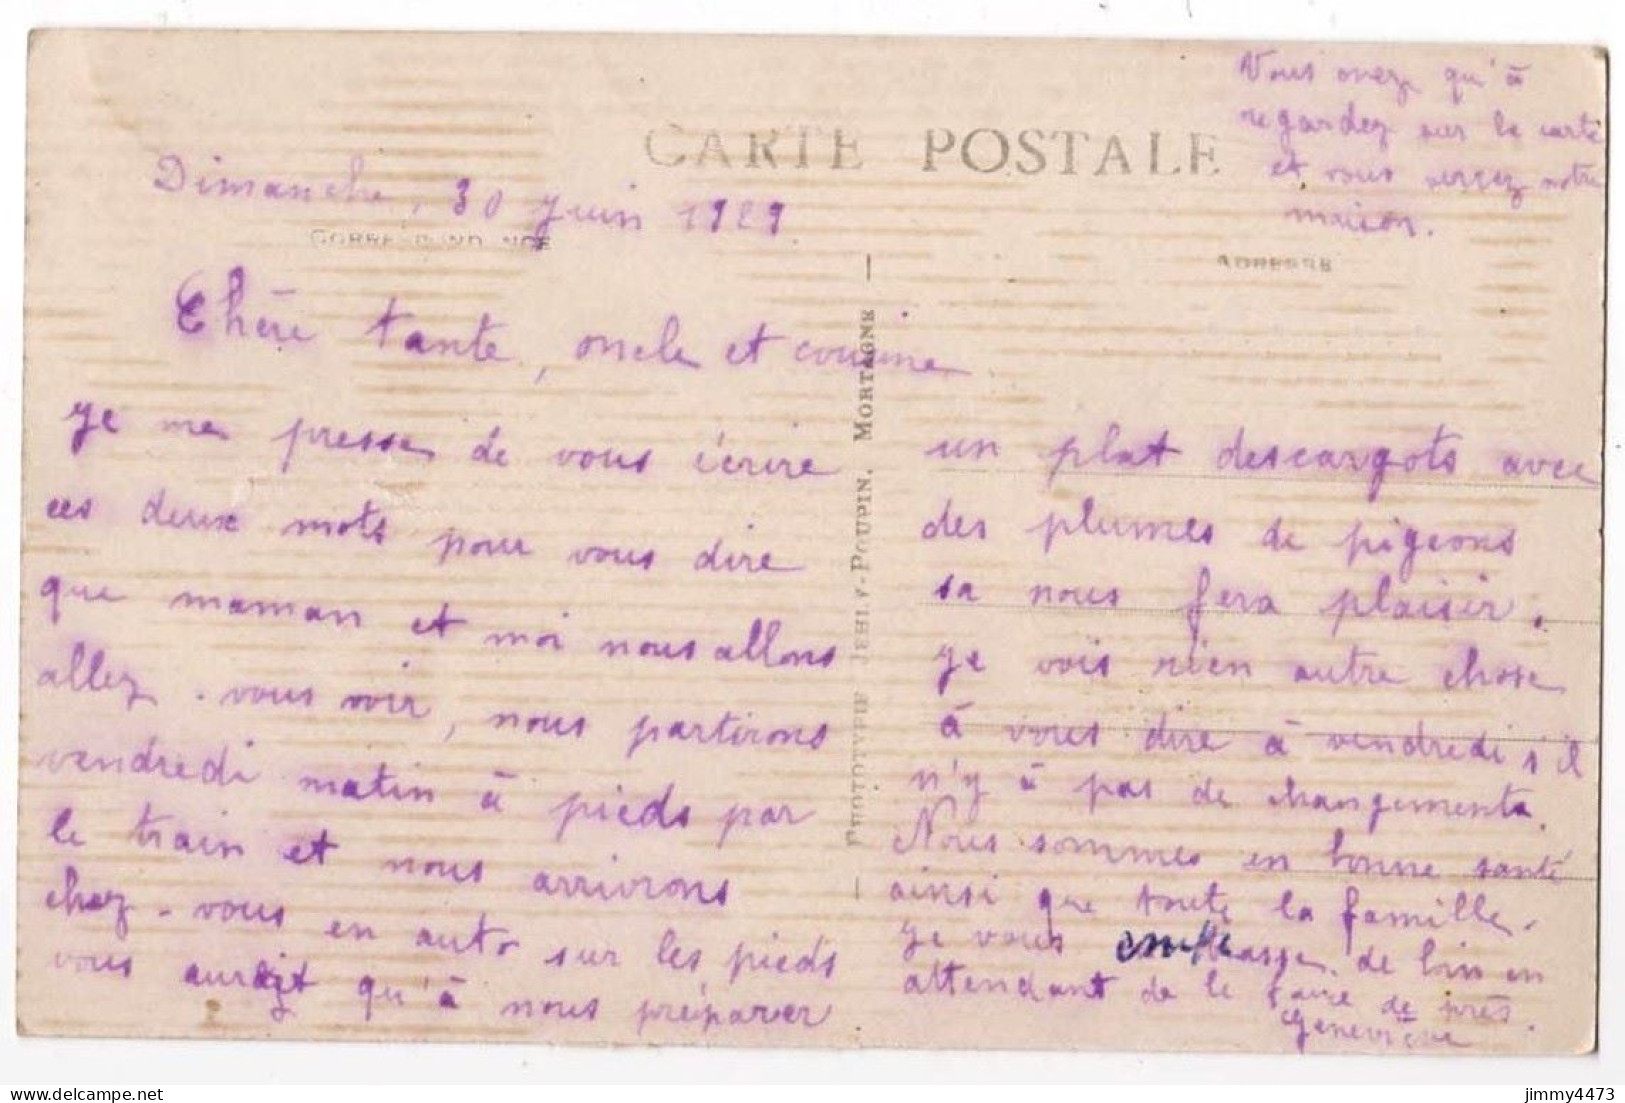 CARTE POSTALE
Vous avez qu'à
regardez sur la carte
et vous verrez notre
maison.
Dimanche, 30 juin 1929.
CORRESPONDANCE
ADRESSE
Chère tante, oncle et cousine
je me presse de vous écrire
ces deux mots pour vous dire
que maman et moi nous allons
allez-vous voir, nous partirons
vendredi matin à pieds par
le train et nous arrivrons
chez-vous en auto sur les pieds
vous aurait qu'à nous préparer
PHOTOTYPIE JEHLY-POUPIN, MORTAGNE
un plat descargots avec
des plumes de pigeons
sa nous fera plaisir.
je vois rien autre chose
à vous dire à vendredi s'il
n'y à pas de changements.
Nous sommes en bonne santé
ainsi que toute la famille.
je vous embrasse de loin en
attendant de le faire de près.
Geneviève
jimmy4473